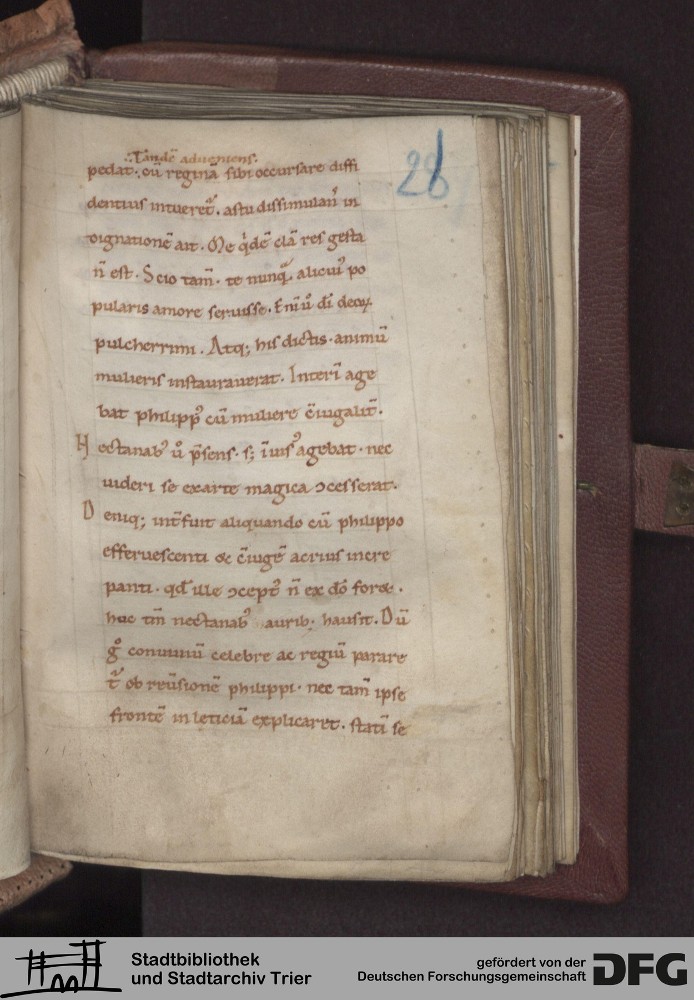 ∴Tandē adueniens∴
28
pedat∴ cū reginā sibi occursare diffi
dentius intueretᷣ. astu dissimulanᷤ in
dignationē ait. Me qͥdē clā res gesta
n̄ est. Scio tam̄. te nunqͣ alicuiꝰ po
pularis amore seruisse. Eniū di deoꝝ
pulcherrimi. Atq; his dictis. animū
mulieris instaurauerat. Interī age
bat philippꝰ cū muliere c̄iugalit̄.
Hectanabꝰ ū p̄sens. s; īuisꝰ agebat. nec
uideri se exarte magica ↄcesserat.
Deniq; int̄fuit aliquando cū philippo
efferuescenti & c̄iugē acrius incre
panti. qd̄ ille ↄceptꝰ n̄ ex dō foret.
huc tm̄ nectanabꝰ aurib; hausit. Dū
gͦ conuiuiū celebre ac regiū parare
t̄ ob reūsionē philippi. nec tam̄ ipse
frontē in leticiā explicaret. statī se
Stadtbibliothek
und Stadtarchiv Trier
gefördert von der
Deutschen Forschungsgemeinschaft
DFG